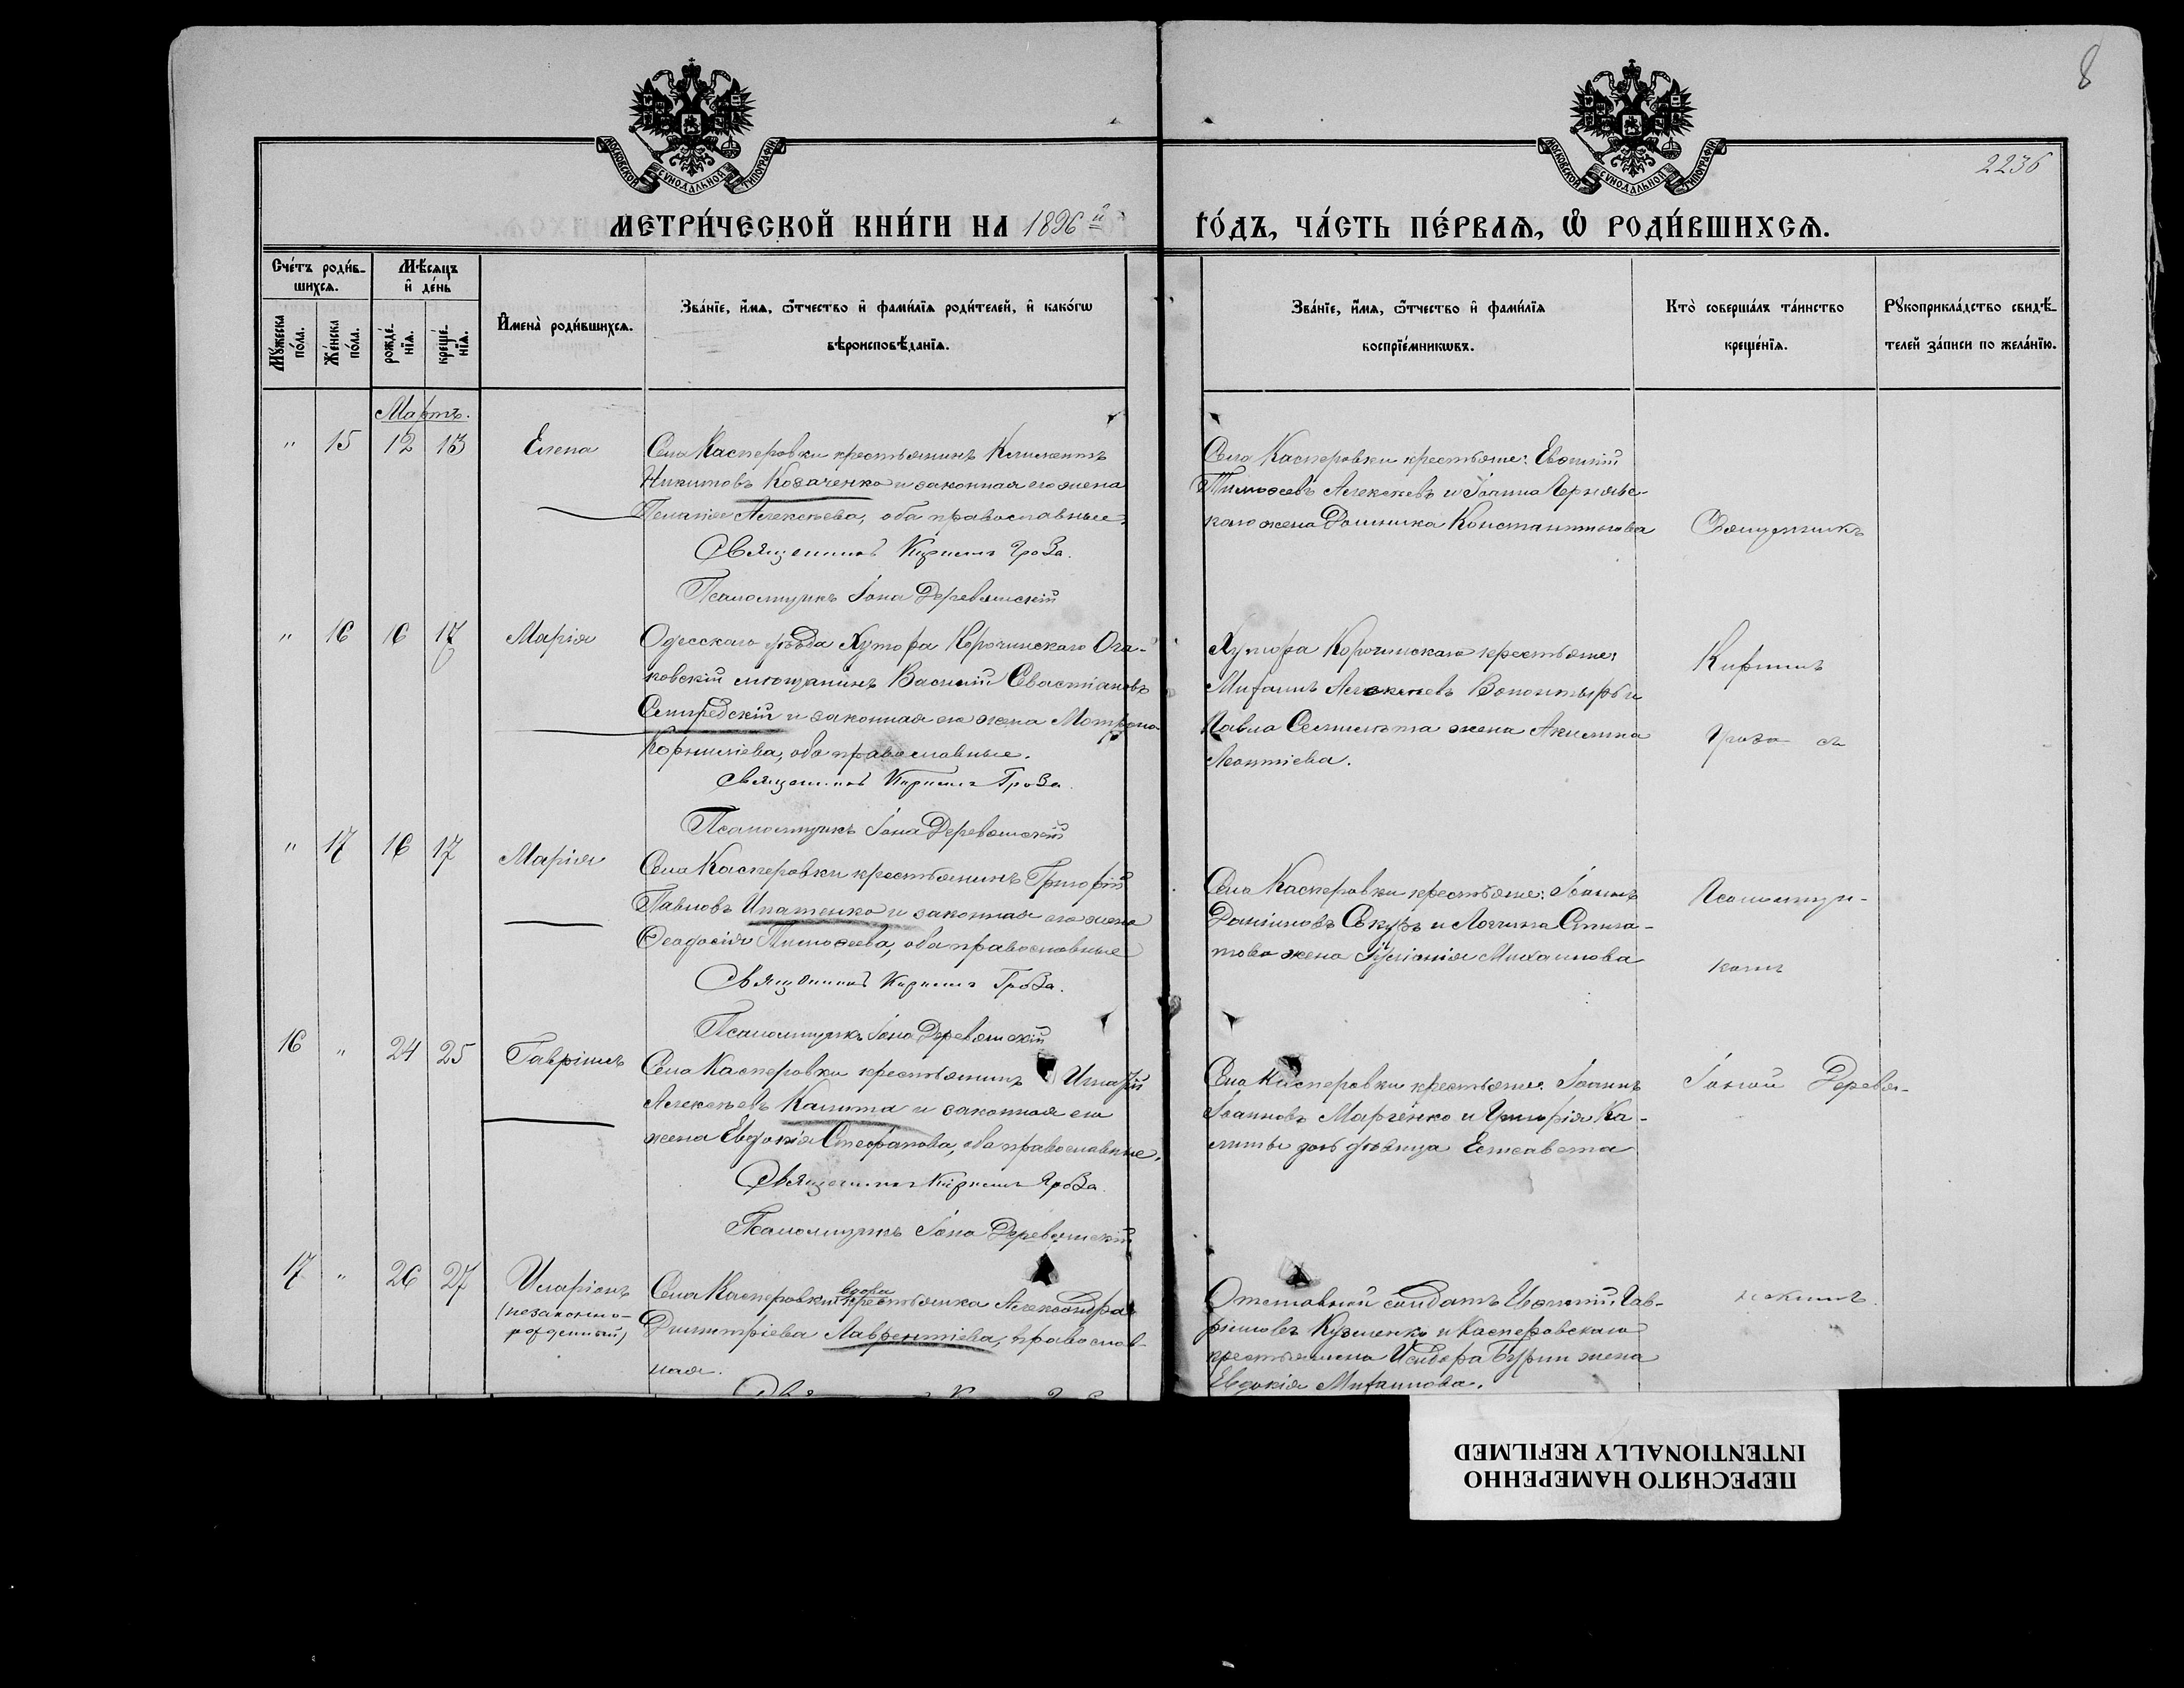 8
2236
МОСКОВСКОЙ СѴНОДАЛЬНОЙ ТИПОГРАФІИ
МОСКОВСКОЙ СѴНОДАЛЬНОЙ ТИПОГРАФІИ
МЕТРИ́ЧЕСКОЙ КНИ́ГИ НА 1896й ГО́ДЪ, ЧА́СТЬ ПЕ́РВАѦ, Ѡ РОДИ́ВШИХСѦ.
Сче́тъ роди́в-
шихсѧ.
Мѣ́сѧцъ
и҆ де́нь
Мꙋ́жеска
по́ла.
Же́нска
по́ла.
рожде́-
нїѧ.
креще́-
нїѧ.
И҆мена̀ роди́вшихсѧ.
Зва́нїе, и҆́мѧ, ѻ҆́тчество и҆ фами́лїѧ роди́телей, и҆ како́гѡ
вѣроисповѣ́данїѧ.
Зва́нїе, и҆́мѧ, ѻ҆́тчество и҆ фами́лїѧ
воспрїе́мникѡвъ.
Кто̀ соверша́лъ та́инство
креще́нїѧ.
Рꙋкоприкла́дство свидѣ́-
телей за́писи по жела́нїю.
Мартъ.
" 15 12 13 Елена
Села Касперовки крестьянинъ Климентъ
Никитовъ Козаченко и законная его жена
Пелагія Алексѣева, оба православные.
Священникъ Кириллъ Гроза.
Псаломщикъ Іона Деревянскій
Села Касперовки крестьяне: Евѳимій
Тимоѳеевъ Алексѣевъ и Іоанна Чернявс-
каго жена Домника Константинова
Священникъ
" 16 16 17 Марія
Одесскаго уѣзда Хутора Корочинскаго Оча-
ковскій мѣщанинъ Василій Севастіановъ
и законная его жена Матрона
Корниліева, оба православные.
Священникъ Кириллъ Гроза.
Псаломщикъ Іона Деревянскій
Хутора Корочинскаго крестьяне:
Михаилъ Алексѣевъ и
Павла жена Акилина
Леонтіева.
Кириллъ
Гроза съ
" 17 16 17 Марія
Села Касперовки крестьянинъ Григорій
Павловъ Ипатенко и законная его жена
Ѳеодосія Тимоѳеева, оба православные
Священникъ Кириллъ Гроза.
Псаломщикъ Іона Деревянскій
Села Касперовки крестьяне: Іоаннъ
Даніиловъ и Логгина
жена Іуліанія Михаилова
Псаломщи-
комъ
16 " 24 25 Гавріилъ
Села Касперовки крестьянинъ Игнатій
Алексѣевъ Калита и законная его
жена Евдокія Стефанова, оба православные.
Священникъ Кириллъ Гроза
Псаломщикъ Іона Деревянскій
Села Касперовки крестьяне Іоаннъ
Іоанновъ Марченко и Григорія Ка-
литы дочь дѣвица Елисавета
Іоною Деревя-
17 " 26 27 Иларіонъ
(незаконно-
рожденный)
вдова
Села Касперовки крестьянка Александра
Димитріева Лаврентіева, православ-
ная.
Отставной солдатъ Евѳимій Гав-
ріиловъ Кузменко и Касперовскаго
крестьянина Исидора жена
Евдокія Михаилова.
нскимъ.
ПЕРЕСНЯТО НАМЕРЕННО
INTENTIONALLY REFILMED